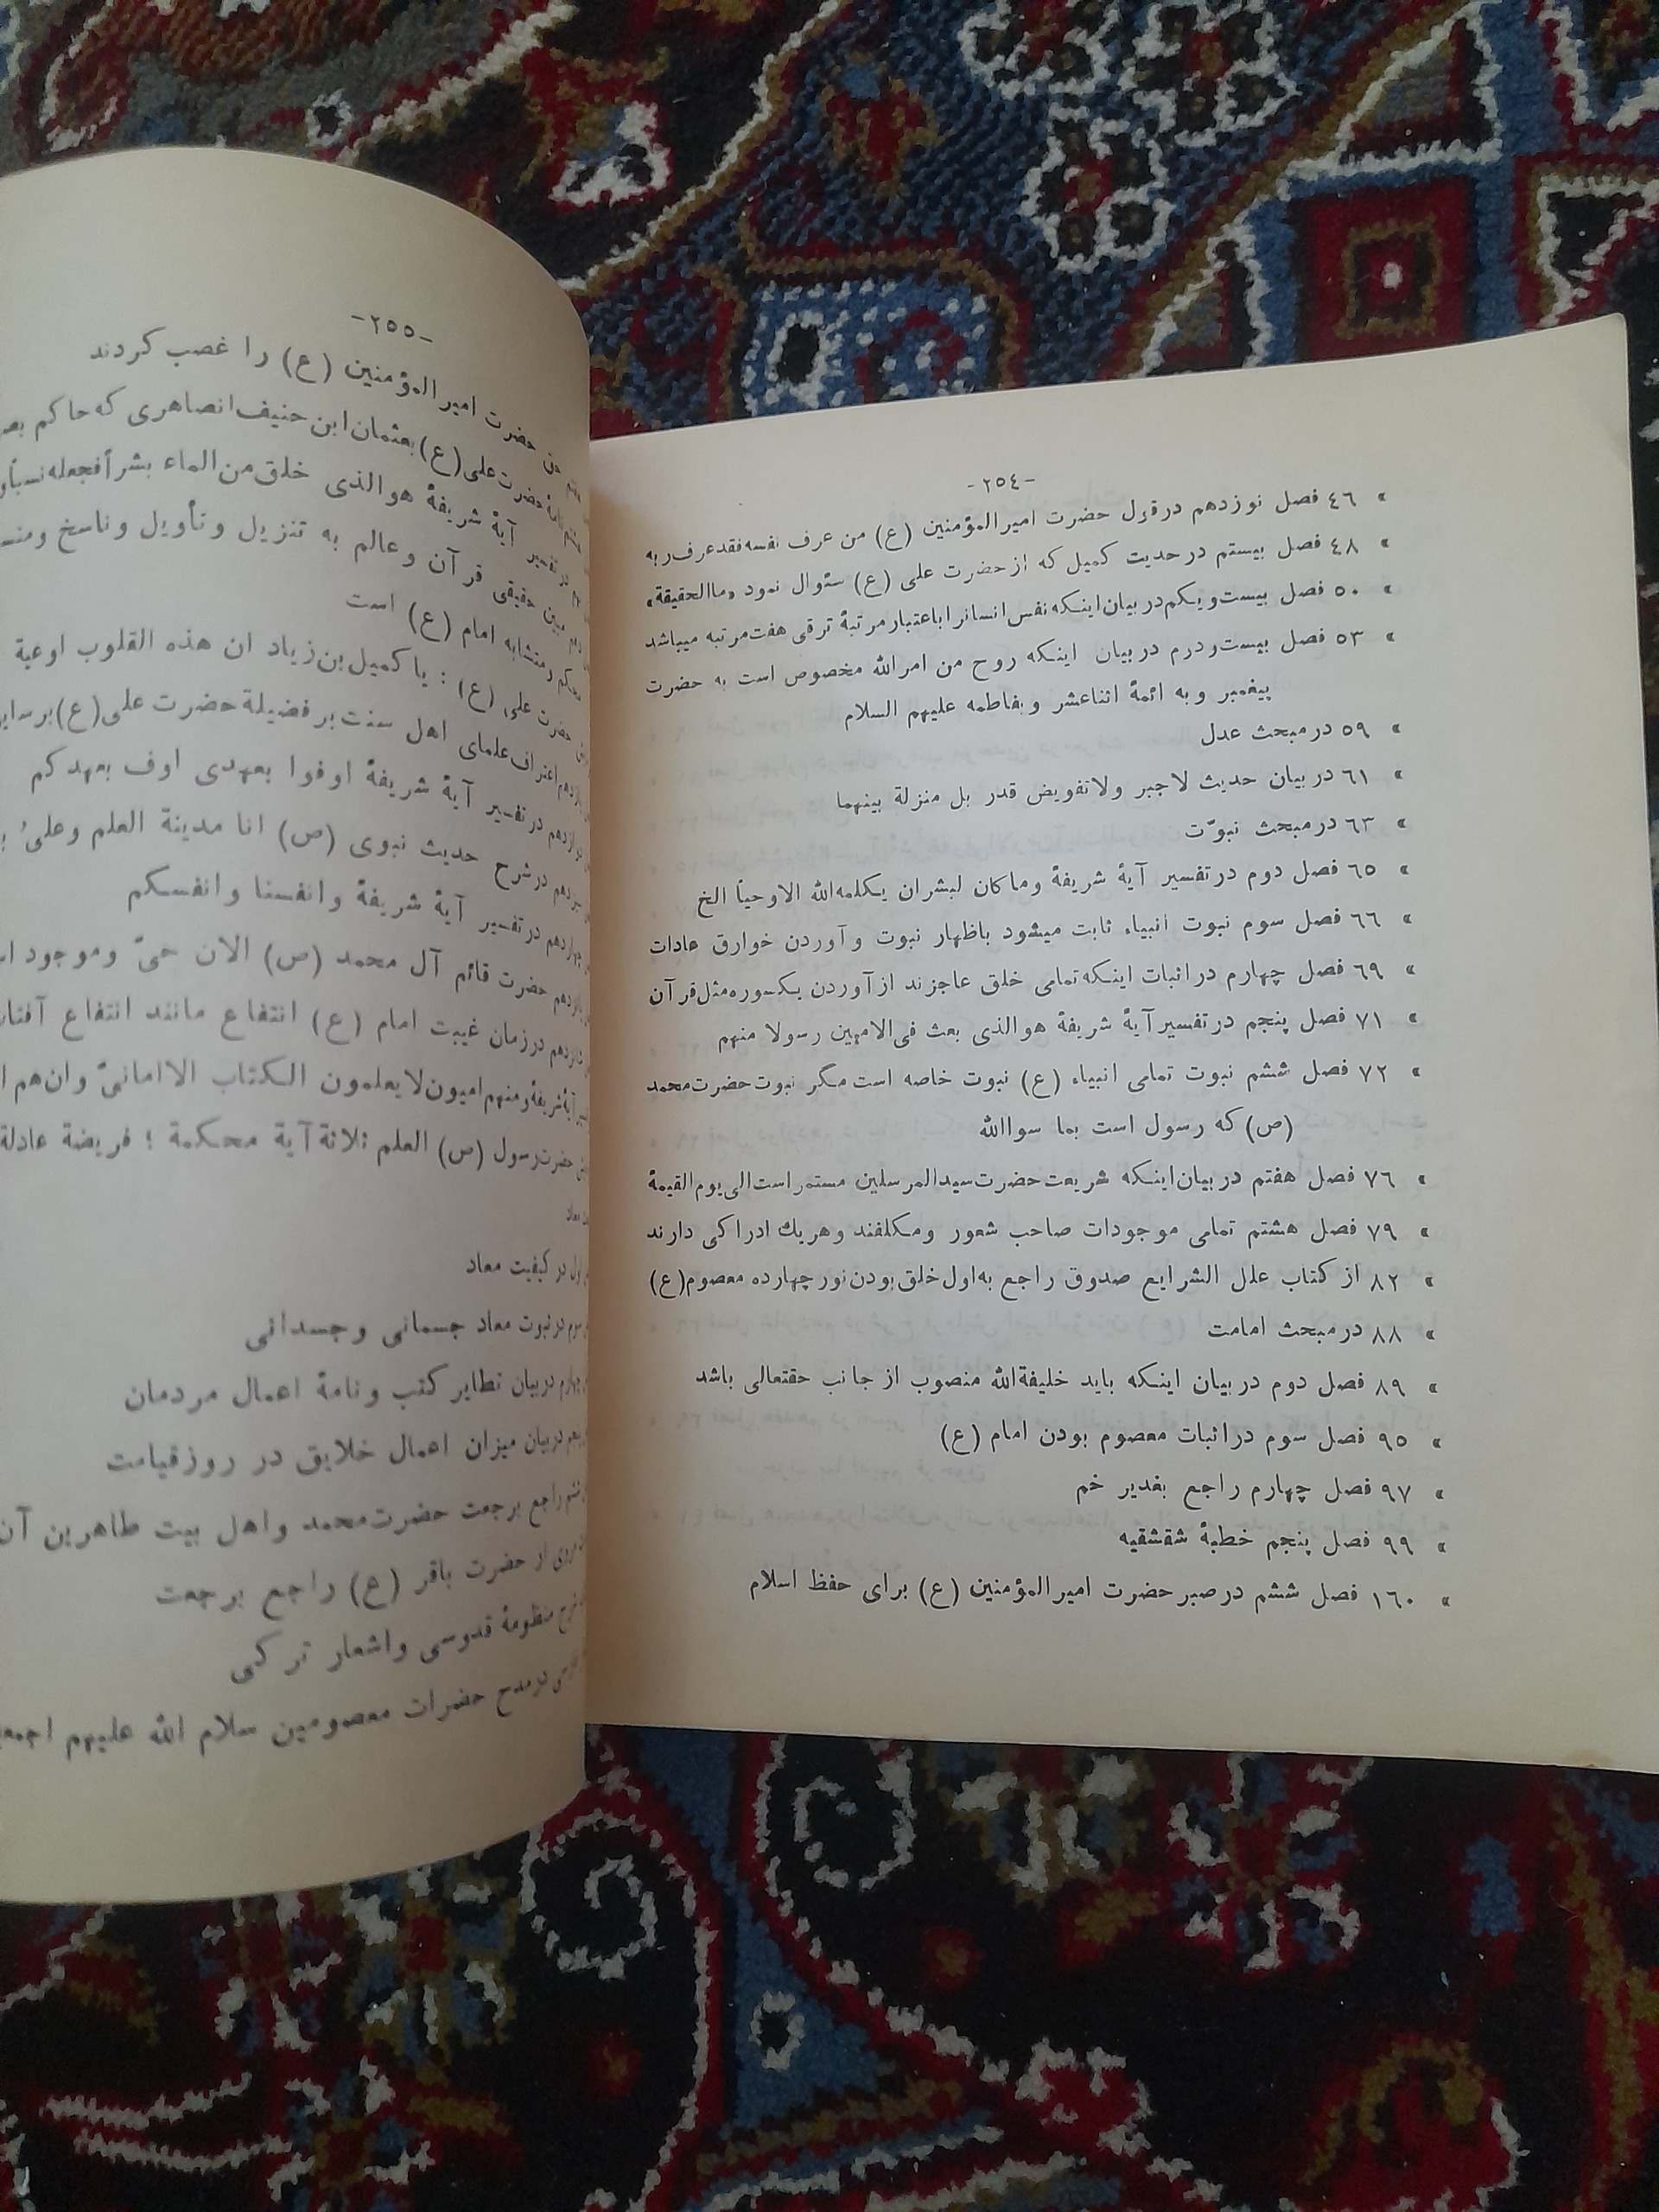 -٢٥٤-
» ٤٦ فصل نوزدهم درقول حضرت امیرالمؤمنین (ع) من عرف نفسه فقد عرف ربه
» ٤٨ فصل بیستم در حدیت کمیل که از حضرت علی (ع) سئوال نمود «ماالحقیقة»
» ٥٠ فصل بیست‌ویکم در بیان اینکه نفس انسانرا باعتبار مرتبهٔ ترقی هفت مرتبه میباشد
» ٥٣ فصل بیست‌ودرم در بیان اینکه روح من امرالله مخصوص است به حضرت
پیغمبر و به ائمهٔ اثناعشر و بفاطمه علیهم السلام
» ٥٩ در مبحث عدل
» ٦١ در بیان حدیث لاجبر ولاتفویض قدر بل منزلة بینهما
» ٦٣ در مبحث نبوّت
» ٦٥ فصل دوم در تفسیر آیهٔ شریفهٔ وماکان لبشران یکلمه‌الله الاوحیاً الخ
» ٦٦ فصل سوم نبوت انبیاء ثابت میشود باظهار نبوت و آوردن خوارق عادات
» ٦٩ فصل چهارم در اثبات اینکه تمامی خلق عاجزند از آوردن یکسوره مثل قرآن
» ٧١ فصل پنجم در تفسیر آیهٔ شریفهٔ هوالذی بعث فی‌الامیین رسولا منهم
» ٧٢ فصل ششم نبوت تمامی انبیاء (ع) نبوت خاصه است مگر نبوت حضرت محمد
(ص) که رسول است بما سواالله
» ٧٦ فصل هفتم در بیان اینکه شریعت حضرت سیدالمرسلین مستمر است الی یوم القیمهٔ
» ٧٩ فصل هشتم تمامی موجودات صاحب شعور ومکلفند وهریك ادراکی دارند
» ٨٢ از کتاب علل الشرایع صدوق راجع به اول خلق بودن نور چهارده معصوم (ع)
» ٨٨ در مبحث امامت
» ٨٩ فصل دوم در بیان اینکه باید خلیفةالله منصوب از جانب حقتعالی باشد
» ٩٥ فصل سوم در اثبات معصوم بودن امام (ع)
» ٩٧ فصل چهارم راجع بغدیر خم
» ٩٩ فصل پنجم خطبهٔ شقشقیه
» ١٦٠ فصل ششم در صبر حضرت امیرالمؤمنین (ع) برای حفظ اسلام
-٢٥٥-
حضرت امیرالمؤمنین (ع) را غصب کردند
حضرت علی (ع) بعثمان ابن حنیف انصاهری که حاکم
در تفسیر آیهٔ شریفهٔ هوالذی خلق من الماء بشراً فجعله نسباً
مبین حقیقی قرآن و عالم به تنزیل وتأویل وناسخ
ومتشابه امام (ع) است
حضرت علی (ع) : یاکمیل بن زیاد ان هذه القلوب اوعیة
اعتراف علمای اهل سنت بر فضیلة حضرت علی (ع)
در تفسیر آیهٔ شریفهٔ اوفوا بعهدی اوف بعهدکم
در شرح حدیث نبوی (ص) انا مدینة العلم وعلیُ
در تفسیر آیهٔ شریفهٔ وانفسنا وانفسکم
حضرت قائم آل محمد (ص) الان حیّ وموجود
در زمان غیبت امام (ع) انتفاع مانند انتفاع
آیهٔ شریفهٔ ومنهم امیون لایعلمون الکتاب الاامانیّ وان هم
حضرت رسول (ص) العلم ثلاثة آیة محکمة ؛ فریضة عادلة
معاد
در کیفیت معاد
در ثبوت معاد جسمانی وجسدانی
در بیان تطایر کتب ونامهٔ اعمال مردمان
در بیان میزان اعمال خلایق در روز قیامت
راجع برجعت حضرت محمد واهل بیت طاهرین
از حضرت باقر (ع) راجع برجعت
منظومهٔ قدوسی واشعار ترکی
در مدح حضرات معصومین سلام الله علیهم